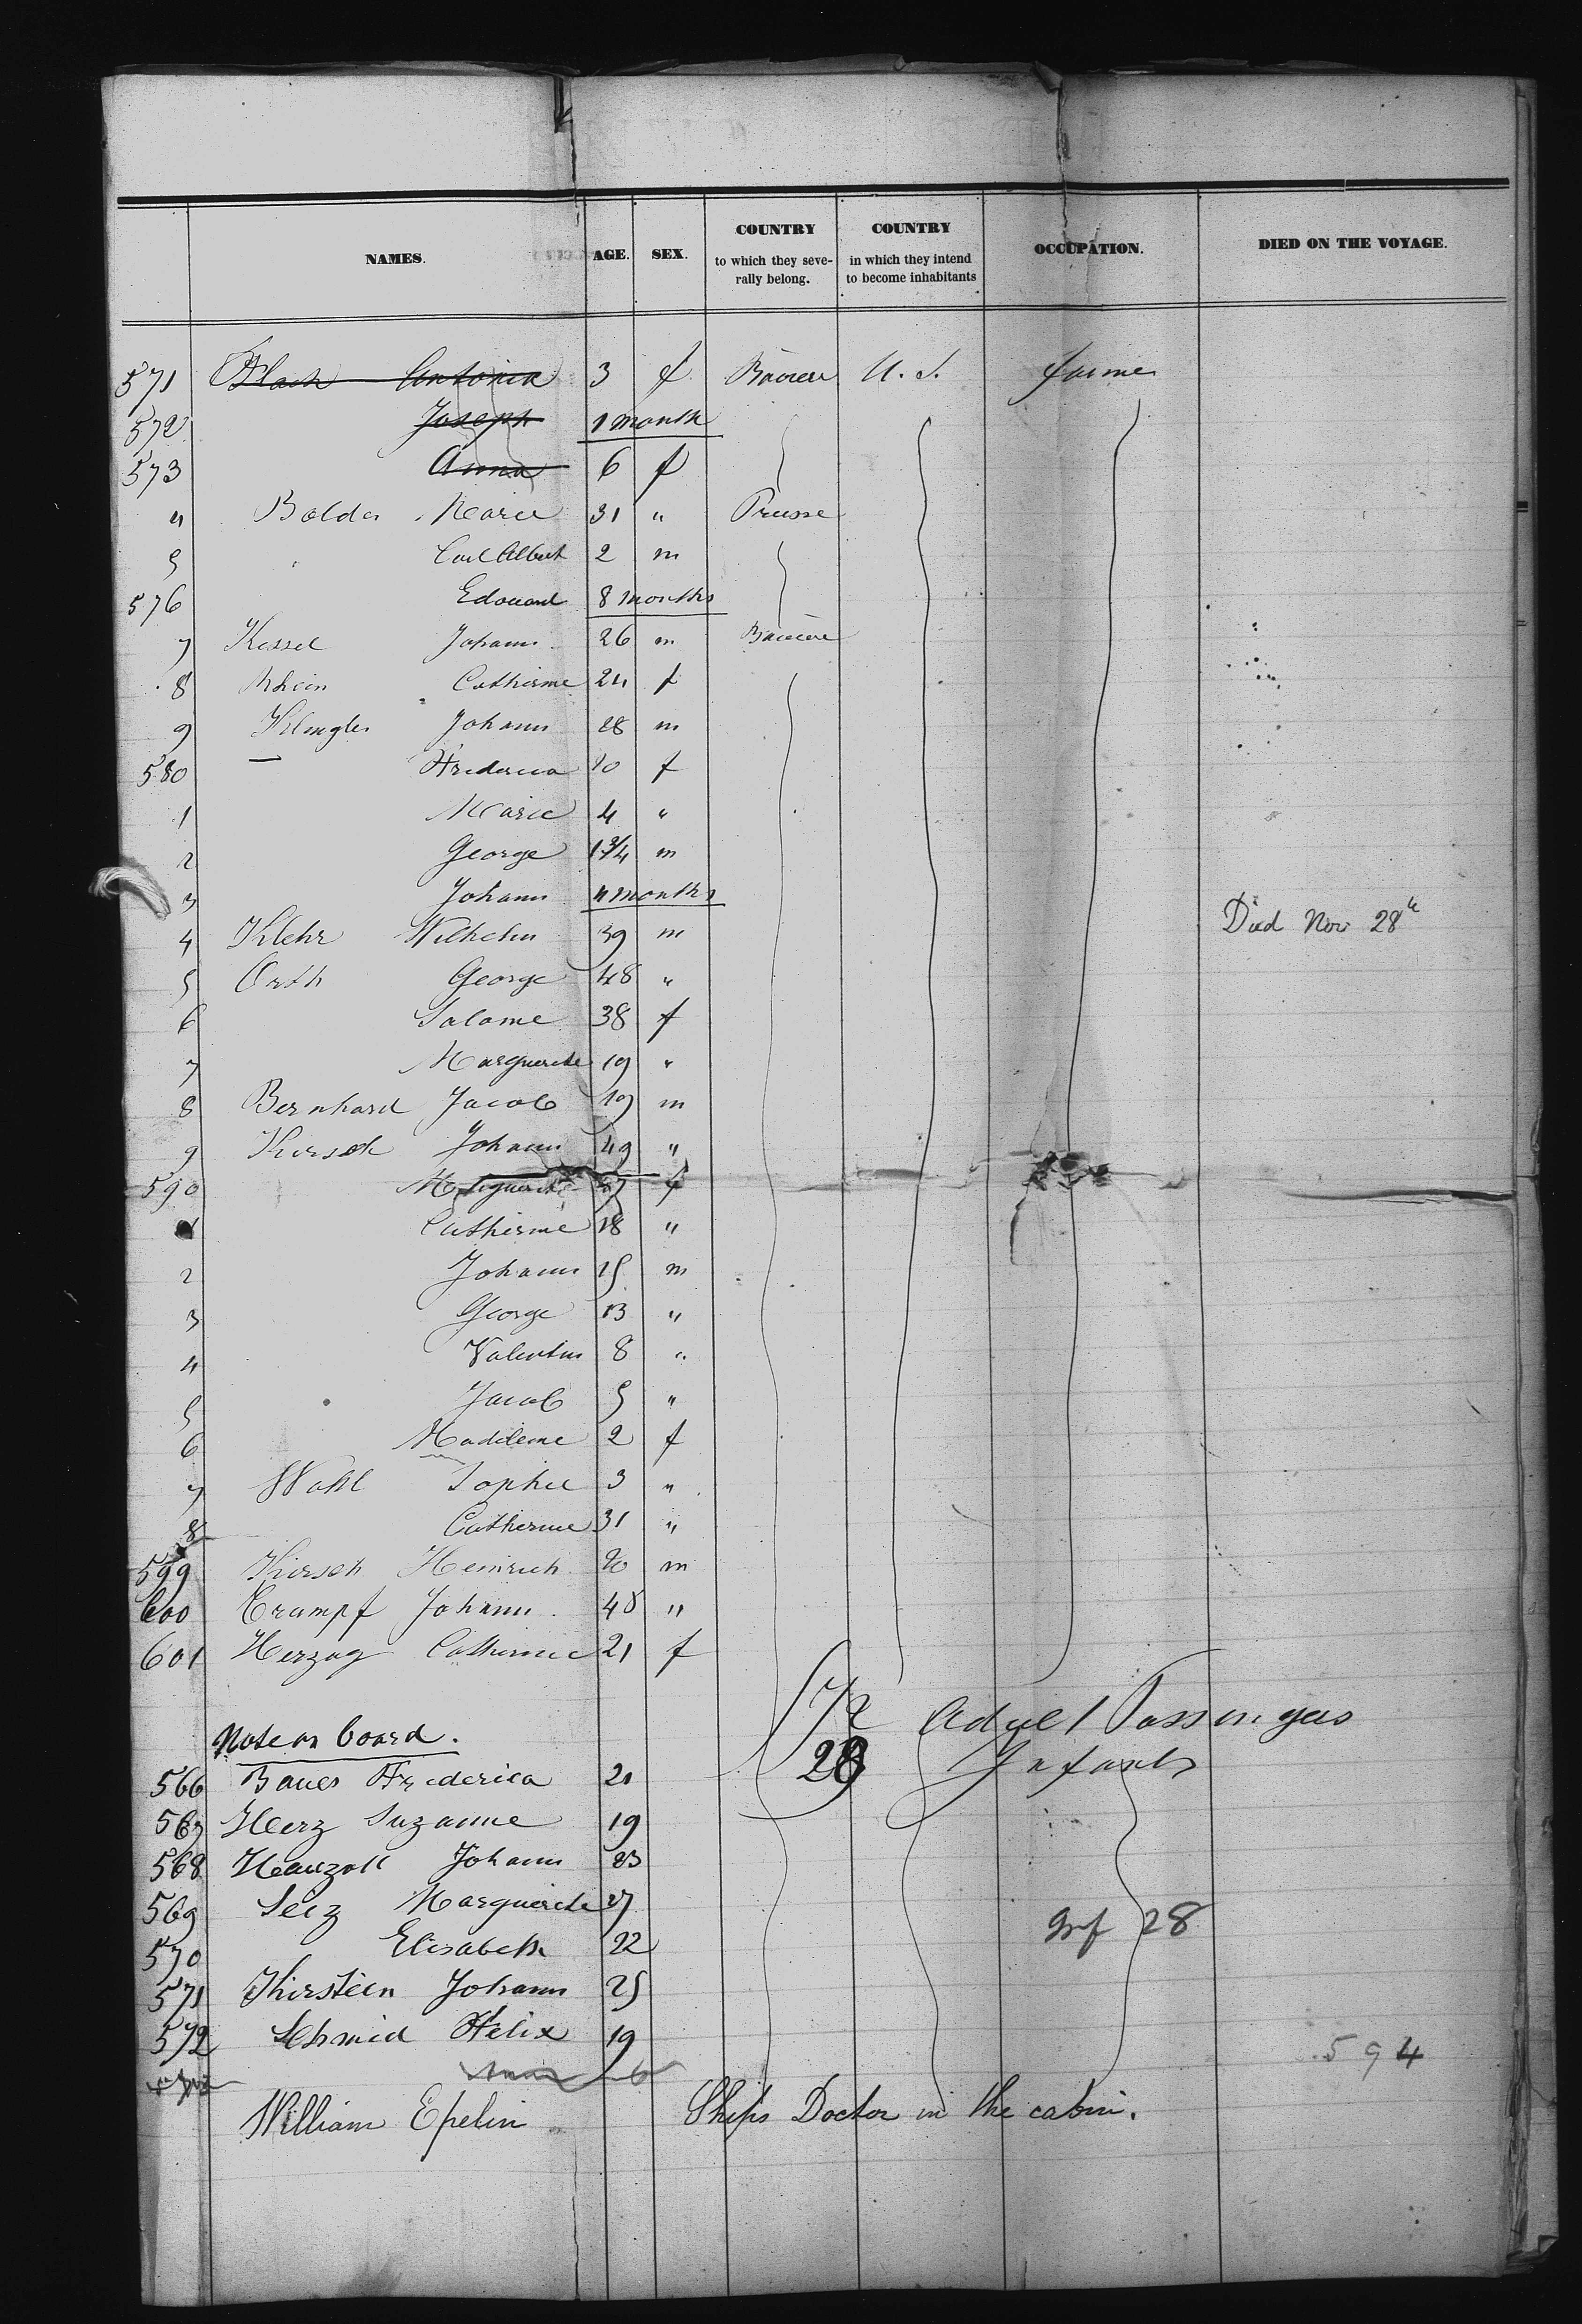 NAMES. AGE. SEX. COUNTRY to which they seve- rally belong. COUNTRY in which they intend to become inhabitants OCCUPATION. DIED ON THE VOYAGE.
571 Antonia 3 f U. S.
572 Joseph 1 month
573 Anna 6 f
4 Marie 31 " Prusse
5 Carl Albert 2 m
576 Edouard 8 months
7 Kessel Johann 26 m
8 Rhein Catherine 24 f
9 Klingler Johann 28 m
580 — Frederica f
1 Marie 4 "
2 George 1 3/4 m
3 Johann 4 months
4 Klehr Wilhelm 39 m Died Nov 28th
5 Orth George 48 "
6 Salome 38 f
7 Marguerite 19 "
8 Bernhard Jacob 19 m
9 Kirsch Johann 49 "
590 Marguerite f
1 Catherine 18 "
2 Johann 15 m
3 George 13 "
4 Valentin 8 "
5 Jacob 5 "
6 Madeleine 2 f
7 Wahl Sophie 3 "
8 Catherine 31 "
599 Kirsch Heinrich 20 m
600 Crumpf Johann 48 "
601 Herzog Catherine 21 f
572 Adult Passengers
Note on board.
28 Infants
566 Bauer Frederica 21
567 Herz Suzanne 19
568 Johann 23
569 Seiz Marguerite 27
Inf 28
570 Elisabeth 22
571 Kirstein Johann 25
572 Schmid Felix 19
594
William Epelin Ships Doctor in the cabin.